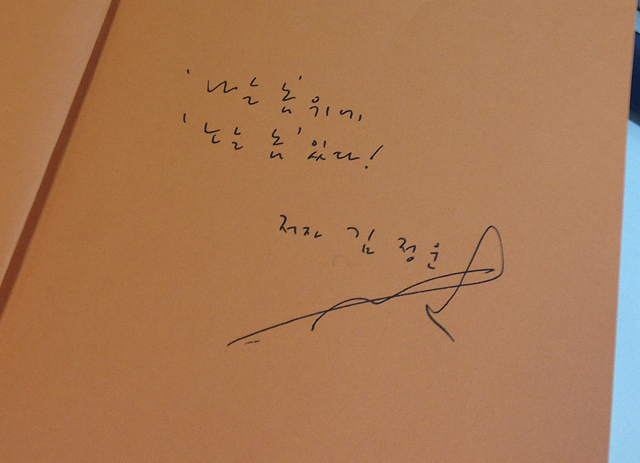 '나는 놈' 위에
'노는 놈' 있다!
저자 김정운